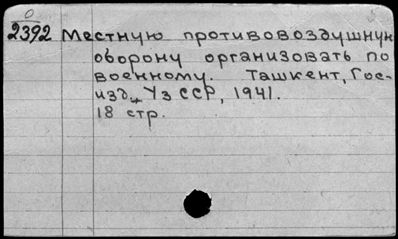 0
2392 Местную противовоздушную
оборону организовать по
военному. Ташкент, Гос-
изд. Уз ССР, 1941.
18 стр.